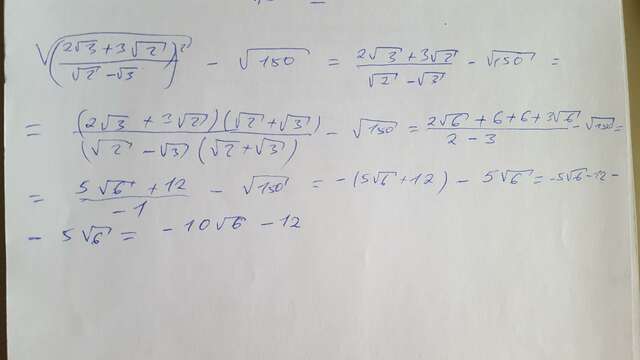 √((2√3 + 3√2)/(√2 - √3))² - √150 = (2√3 + 3√2)/(√2 - √3) - √150 =
= (2√3 + 3√2)(√2 + √3)/(√2 - √3)(√2 + √3) - √150 = (2√6 + 6 + 6 + 3√6)/(2 - 3) - √150 =
= (5√6 + 12)/(-1) - √150 = -(5√6 + 12) - 5√6 = -5√6 - 12 -
- 5√6 = -10√6 - 12